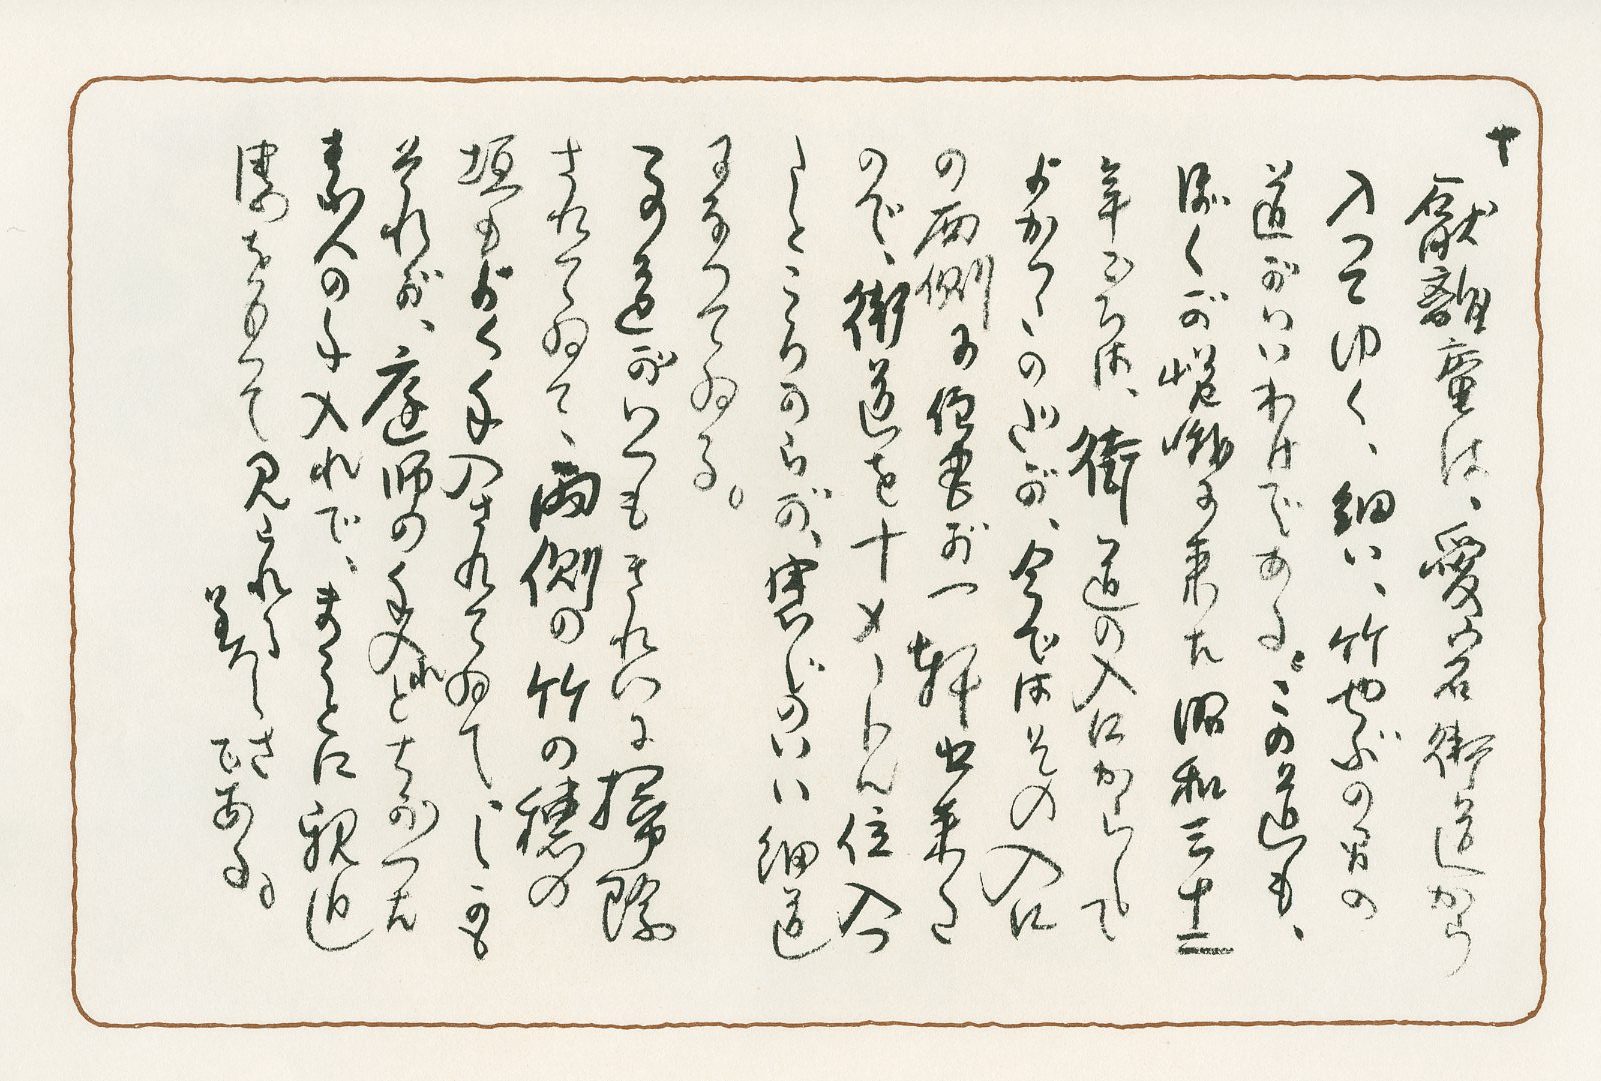 十
厭離庵は、愛宕街道から
入つてゆく、細い、竹やぶの間の
道がいいわけである。この道も、
ぼくが嵯峨に来た昭和三十二
年ごろは、街道の入口からして
よかつたのだが、今ではその入口
の両側に住宅が一軒出来た
ので、街道を十メートル位入つ
たところからが、感じのいい細道
になつてゐる。
この道がいつもきれいに掃除
されてゐて、両側の竹の穂の
垣もよく手入されてゐて、しかも
それが、庭師の手入れとちがつた
素人の手入れで、まことに親近
をもつて見られる
美しさである。